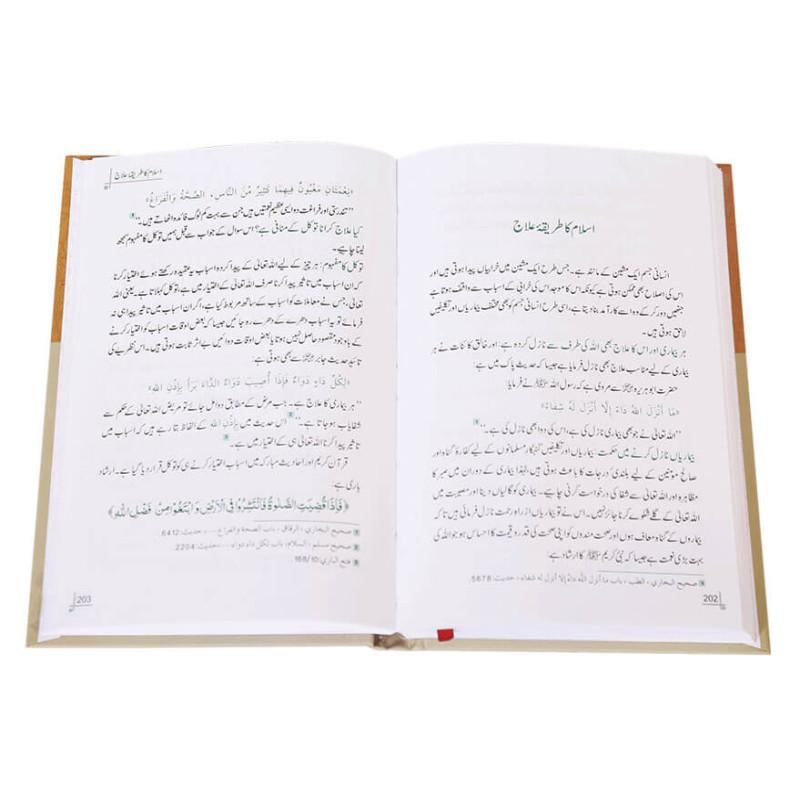 اسلام کا طریقۂ علاج
انسانی جسم ایک مشین کے مانند ہے۔ جس طرح ایک مشین میں خرابیاں پیدا ہوتی ہیں اور
اس کی اصلاح بھی ممکن ہوتی ہے کیونکہ اس کا موجد اس کی خرابی کے اسباب سے واقف ہوتا ہے
جنھیں دور کر کے وہ اسے کارآمد بنا دیتا ہے، اسی طرح انسانی جسم کو بھی مختلف بیماریاں اور تکلیفیں
لاحق ہوتی ہیں۔
ہر بیماری اور اس کا علاج بھی اللہ کی طرف سے نازل کردہ ہے: اور خالق کائنات نے ہر
بیماری کے لیے مناسب علاج بھی نازل فرمایا ہے جیسا کہ حدیث پاک میں ہے:
حضرت ابو ہریرہ ؓ سے مروی ہے کہ رسول اللہ ﷺ نے فرمایا:
«مَا أَنْزَلَ اللهُ دَاءً إِلَّا أَنْزَلَ لَهُ شِفَاءً»
"اللہ تعالیٰ نے جو بھی بیماری نازل کی ہے، اس کی دوا بھی نازل کی ہے۔"
بیماریاں نازل کرنے میں حکمت: بیماریاں اور تکلیفیں گنہگار مسلمانوں کے لیے کفارۂ گناہ اور
صالح مومنین کے لیے بلندیٔ درجات کا باعث ہوتی ہیں، لہٰذا بیماری کے دوران میں صبر کا
مظاہرہ اور اللہ تعالیٰ سے شفا کی درخواست کرنی چاہیے۔ بیماری کو گالیاں دینا اور مصیبت میں
اللہ تعالیٰ کے گلے شکوے کرنا جائز نہیں۔ اس نے تو بیماریاں از راہ رحمت نازل فرمائی ہیں تاکہ
بیماروں کے گناہ معاف ہوں اور صحت مندوں کو اپنی صحت کی قدر و قیمت کا احساس ہو جو اللہ کی
بہت بڑی نعمت ہے جیسا کہ نبی کریم ﷺ کا ارشاد ہے:
صحيح البخاري، الطب، باب ما أنزل الله داء إلا أنزل له شفاء، حديث: 5678.
202
اسلام کا طریقۂ علاج
«نِعْمَتَانِ مَغْبُونٌ فِيهِمَا كَثِيرٌ مِّنَ النَّاسِ، الصِّحَّةُ وَالْفَرَاغُ»
"تندرستی اور فراغت دو ایسی عظیم نعمتیں ہیں جن سے بہت کم لوگ فائدہ اٹھاتے ہیں۔"
کیا علاج کرانا توکل کے منافی ہے؟ اس سوال کے جواب سے قبل ہمیں توکل کا مفہوم سمجھ
لینا چاہیے۔
توکل کا مفہوم: ہر چیز کے لیے اللہ تعالیٰ کے پیدا کردہ اسباب کو یہ عقیدہ رکھتے ہوئے اختیار کرنا
کہ ان اسباب میں تاثیر پیدا کرنا صرف اللہ تعالیٰ کے اختیار میں ہے، توکل کہلاتا ہے۔ یعنی اللہ
تعالیٰ، جس نے معاملات کو اسباب کے ساتھ مربوط کیا ہے، اگر ان اسباب میں تاثیر پیدا ہی نہ
فرمائے تو یہ اسباب دھرے کے دھرے رہ جائیں جیسا کہ بعض اوقات اسباب کو اختیار کرنے
کے باوجود مقصود حاصل نہیں ہوتا یا بعض اوقات دوائیں بے اثر ثابت ہوتی ہیں۔ اس نظریے کی
تائید حدیث جابر ؓ سے بھی ہوتی ہے:
«لِكُلِّ دَاءٍ دَوَاءٌ فَإِذَا أُصِيبَ دَوَاءُ الدَّاءِ بَرَأَ بِإِذْنِ اللهِ»
"ہر بیماری کا علاج ہے۔ جب مرض کے مطابق دوا مل جائے تو مریض اللہ تعالیٰ کے حکم سے
شفایاب ہو جاتا ہے۔" اس حدیث میں بِإِذْنِ اللهِ کے الفاظ بتا رہے ہیں کہ اسباب میں
تاثیر پیدا کرنا اللہ تعالیٰ ہی کے اختیار میں ہے۔
قرآن کریم اور احادیث مبارکہ میں اسباب اختیار کرنے ہی کو توکل قرار دیا گیا ہے۔ ارشاد
باری ہے:
﴿فَإِذَا قُضِيَتِ الصَّلٰوةُ فَانْتَشِرُوْا فِي الْاَرْضِ وَابْتَغُوْا مِنْ فَضْلِ اللّٰهِ﴾
صحيح البخاري، الرقاق، باب الصحة والفراغ ...، حديث: 6412.
صحيح مسلم، السلام، باب لكل داء دواء ...، حديث: 2204.
فتح الباري: 168/10.
203